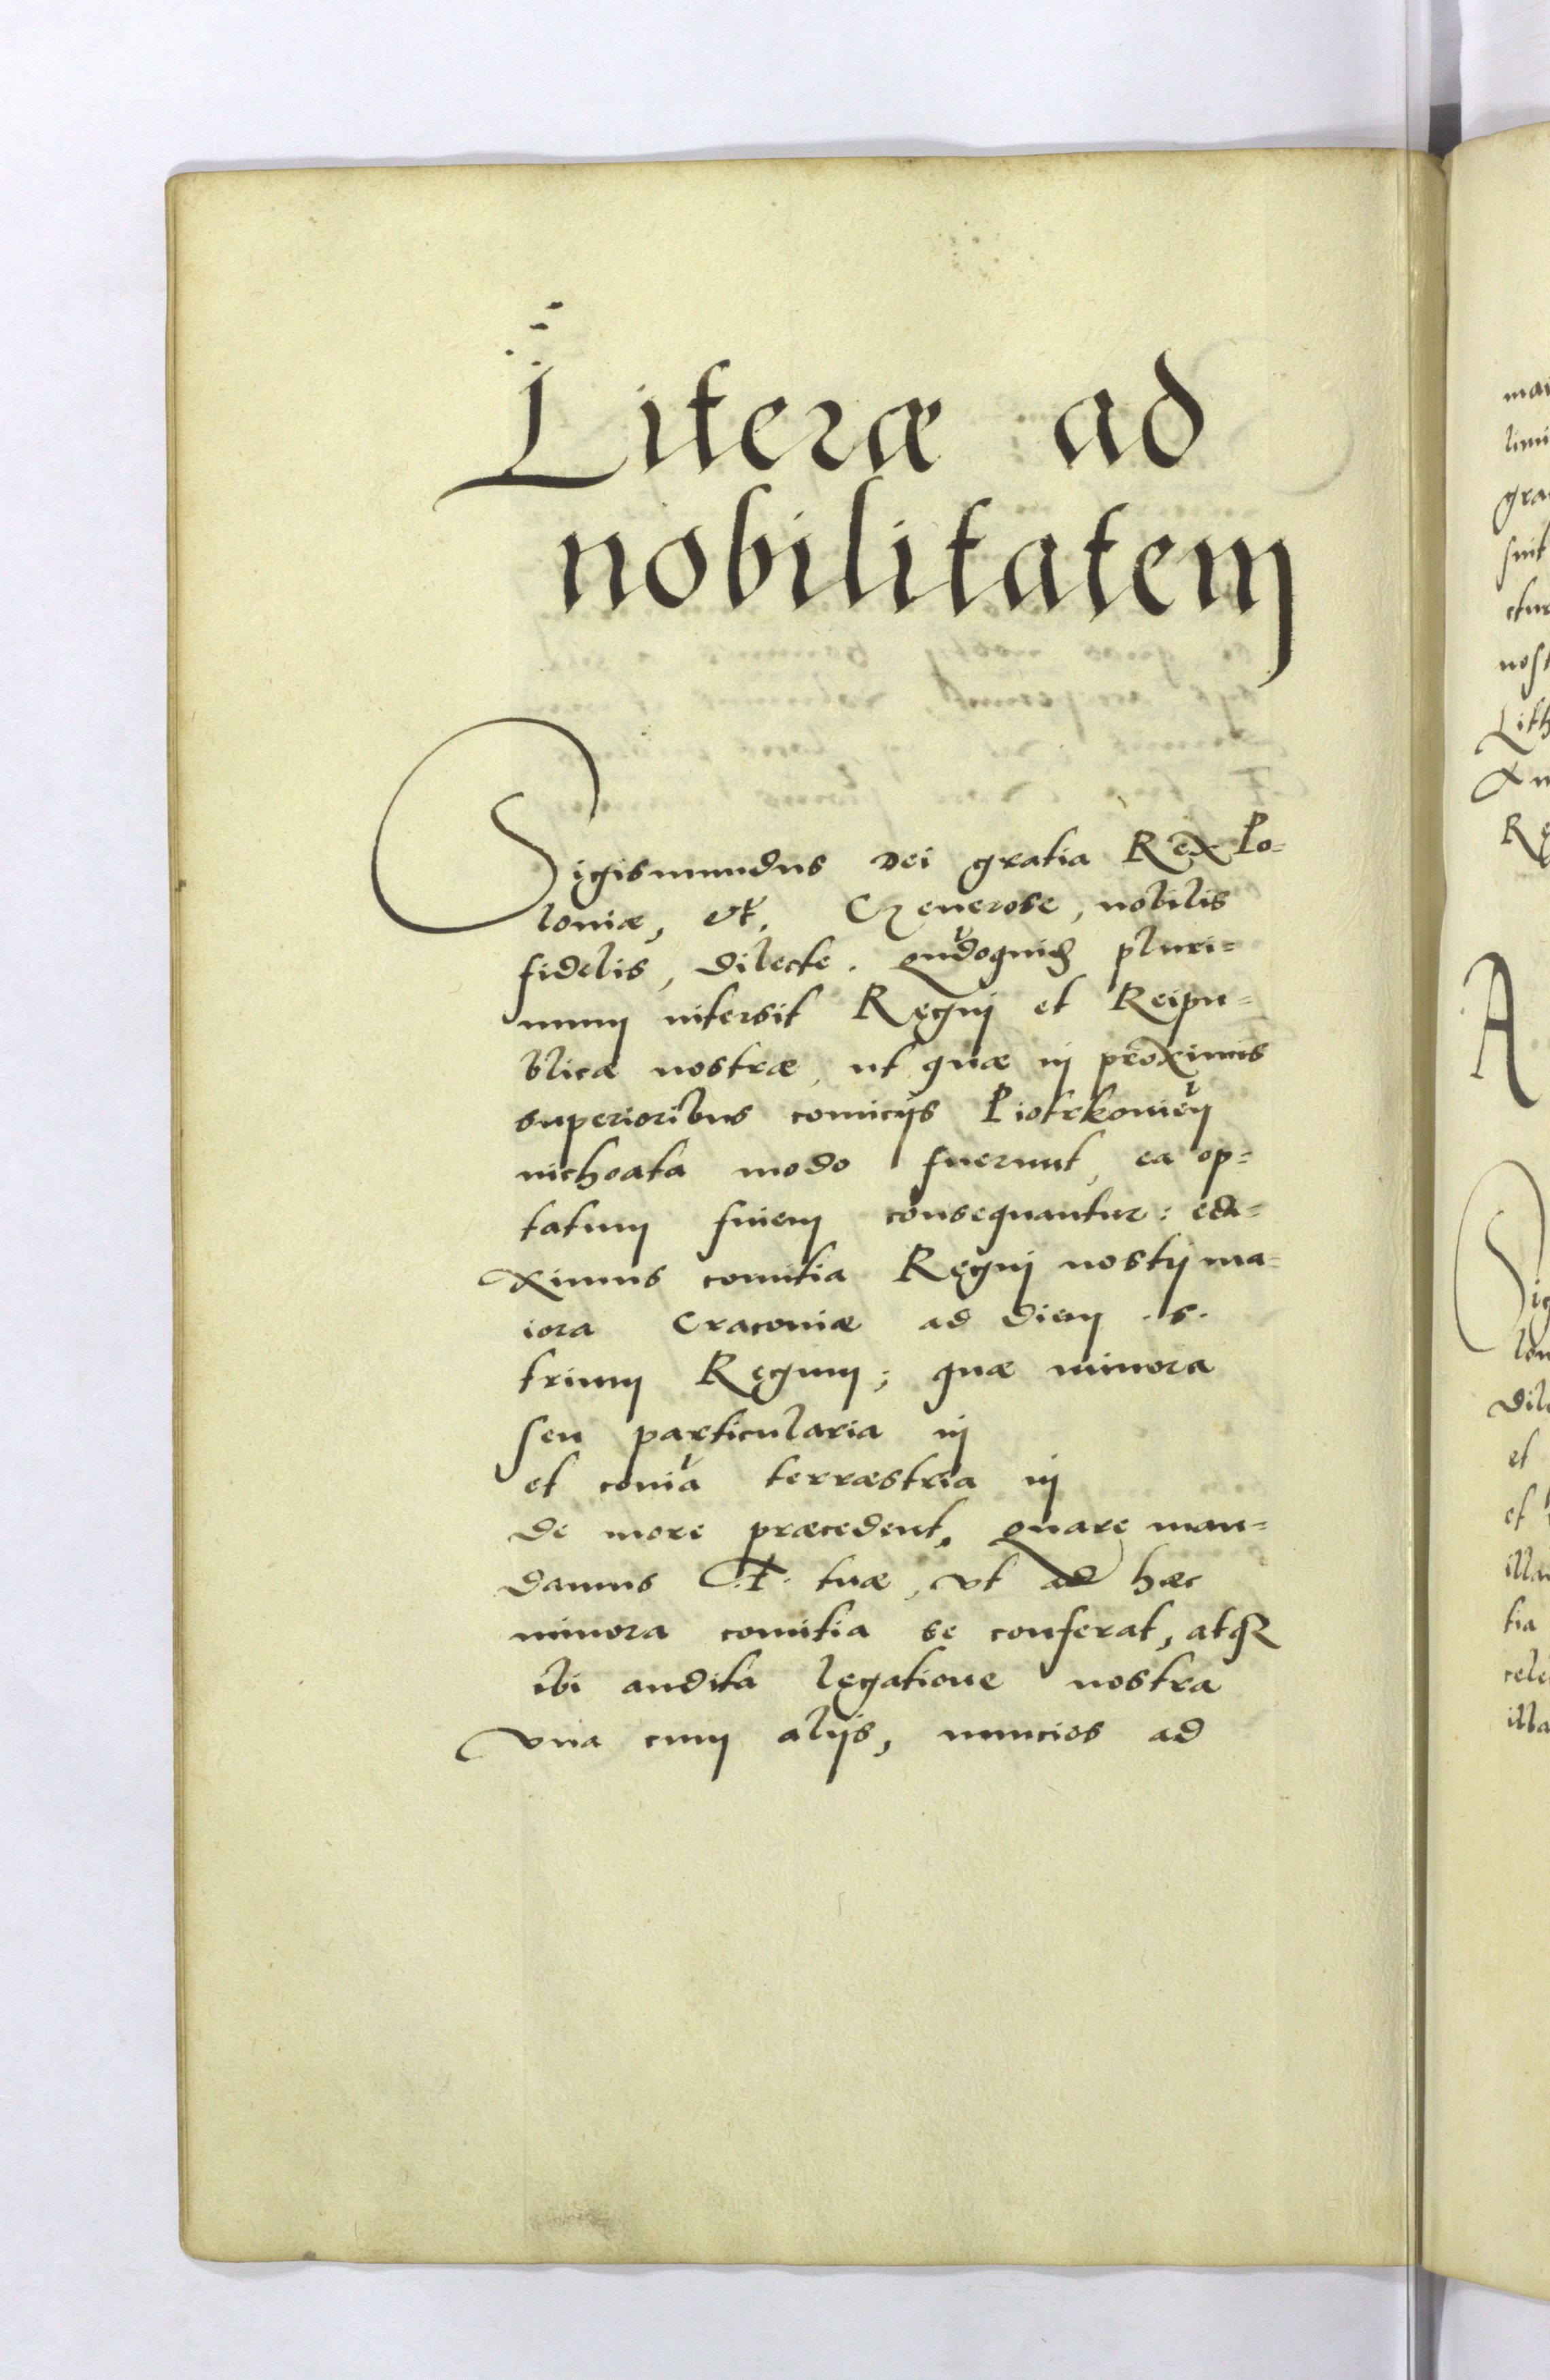 Literæ ad
nobilitatem
Sigismundus Dei gratia Rex Po=
loniæ, etc. Generose, nobilis
fidelis, dilecte. pluri=
mum intersit Regni et Reipu=
blicæ nostræ, ut quæ in proximis
superioribus comicijs
inchoata modo fuerunt, ea op=
tatum finem consequantur: edi=
ximus comitia Regni nostrj ma=
iora Cracoviæ ad diem .s.
trium Regum; quæ minora
seu particularia in
et terræstria in
de more præcedent. Quare man=
damus .F. tuæ, vt ad hæc
minora comitia se conferat, atq3
ibi audita legatione nostra
vna cum alijs, nuncios ad
mai
limi
gra
suit
ctur
nost
Lith
A
lon
dile
et
et
illa
tia
cele
illa